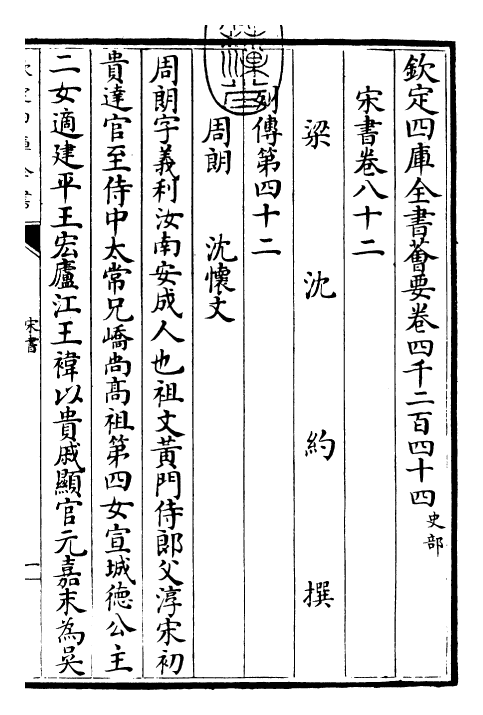 欽定四庫全書薈要卷四千二百四十四 史部
宋書卷八十二
梁 沈 約 撰
列傳第四十二
周朗 沈懷文
周朗字義利汝南安成人也祖文黃門侍郎父淳宋初
貴達官至侍中太常兄嶠尚髙祖第四女宣城德公主
二女適建平王宏廬江王禕以貴戚顯官元嘉末為吳
宋書
一